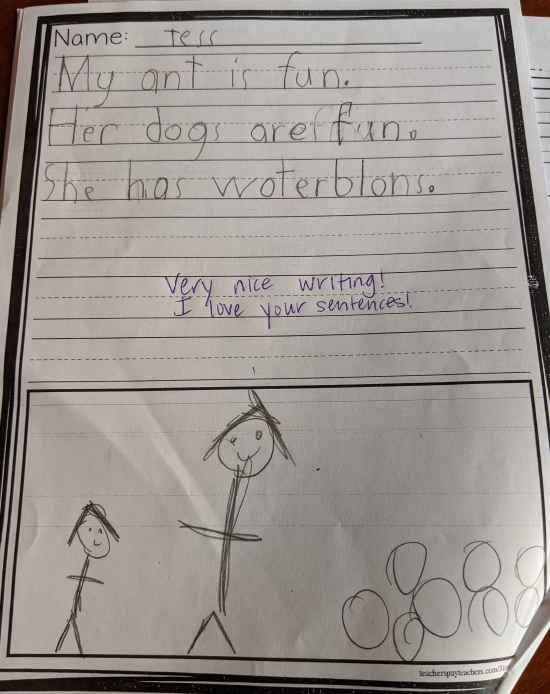 Name: Tess
My ant is fun.
Her dogs are fun.
She has woterblons.
Very nice writing!
I love your sentences!
teacherspayteachers.com/Sto